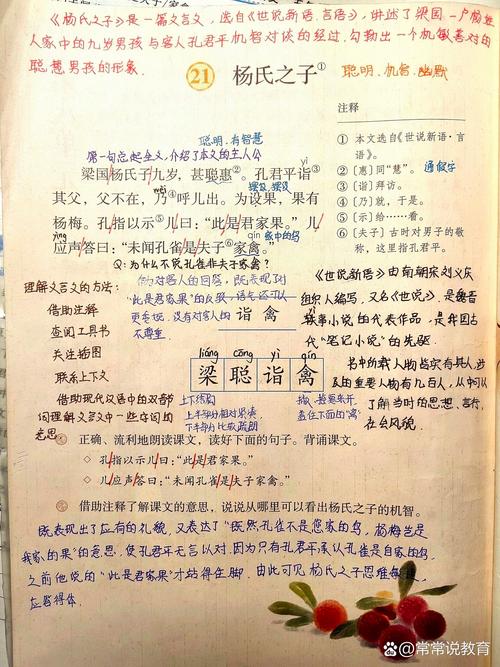 《杨氏之子》是一篇文言文，选自《世说新语·言语》，讲述了梁国一户杨姓
人家中的九岁男孩与客人孔君平机智对谈的经过，勾勒出一个机敏善对的
聪慧男孩的形象．
21 杨氏之子①
聪明．机智．幽默
聪明，有智慧
第一句总起全文，介绍了本文的主人公
梁国杨氏子九岁，甚聪惠②。孔君平诣③
摆设、摆放
其父，父不在，乃④呼儿出。为设果，果有
杨梅。孔指以示⑤儿曰：“此是君家果。”儿
yīng
qín 家中的鸟
应声答曰：“未闻孔雀是夫子⑥家禽。”
Q：为什么不说孔雀非夫子家禽？
注释
① 本文选自《世说新语·言
语》。
② 〔惠〕同“慧”。 通假字
③ 〔诣〕拜访。
④ 〔乃〕就，于是。
⑤ 〔示〕给……看。
⑥ 〔夫子〕古时对男子的敬
称，这里指孔君平。
理解文言文的方法：
借助注释
查阅工具书
关注插图
联系上下文
借助现代汉语中的双部
词理解文言文中一些字词的
意思
既表现了
“此是君家果”的
更委婉，没有对客人的
不尊重．
yì qín
诣 禽
liáng cōng yì qín
梁 聪 诣 禽
上下结构
上半部分相对紧凑
下半部分比较疏朗
撇、捺要展开
盖住下面的“离”
《世说新语》由南朝宋刘义庆
组织人编写，又名《世说》，是魏晋
轶事小说的代表作品，是我国古
代“笔记小说”的先驱．
书中所载人物皆实有其人，涉
及的重要人物有几百人，从中可以
了解当时的思想、言行，
在台风貌．
正确、流利地朗读课文，读好下面的句子。背诵课文。
◇ 孔指以示儿曰：“此是君家果。”
◇ 儿应声答曰：“未闻孔雀是夫子家禽。”
借助注释了解课文的意思，说说从哪里可以看出杨氏之子的机智。
既表现出了应有的礼貌，又表达了“既然孔雀不是您家的鸟，杨梅岂是
我家的果”的意思，使孔君平无言以对．因为只有孔君平承认孔雀是自家的鸟，
之前他说的“此是君家果”才站得住脚．由此可见，杨氏之子思维敏捷，
应答得体．
@常常说教育